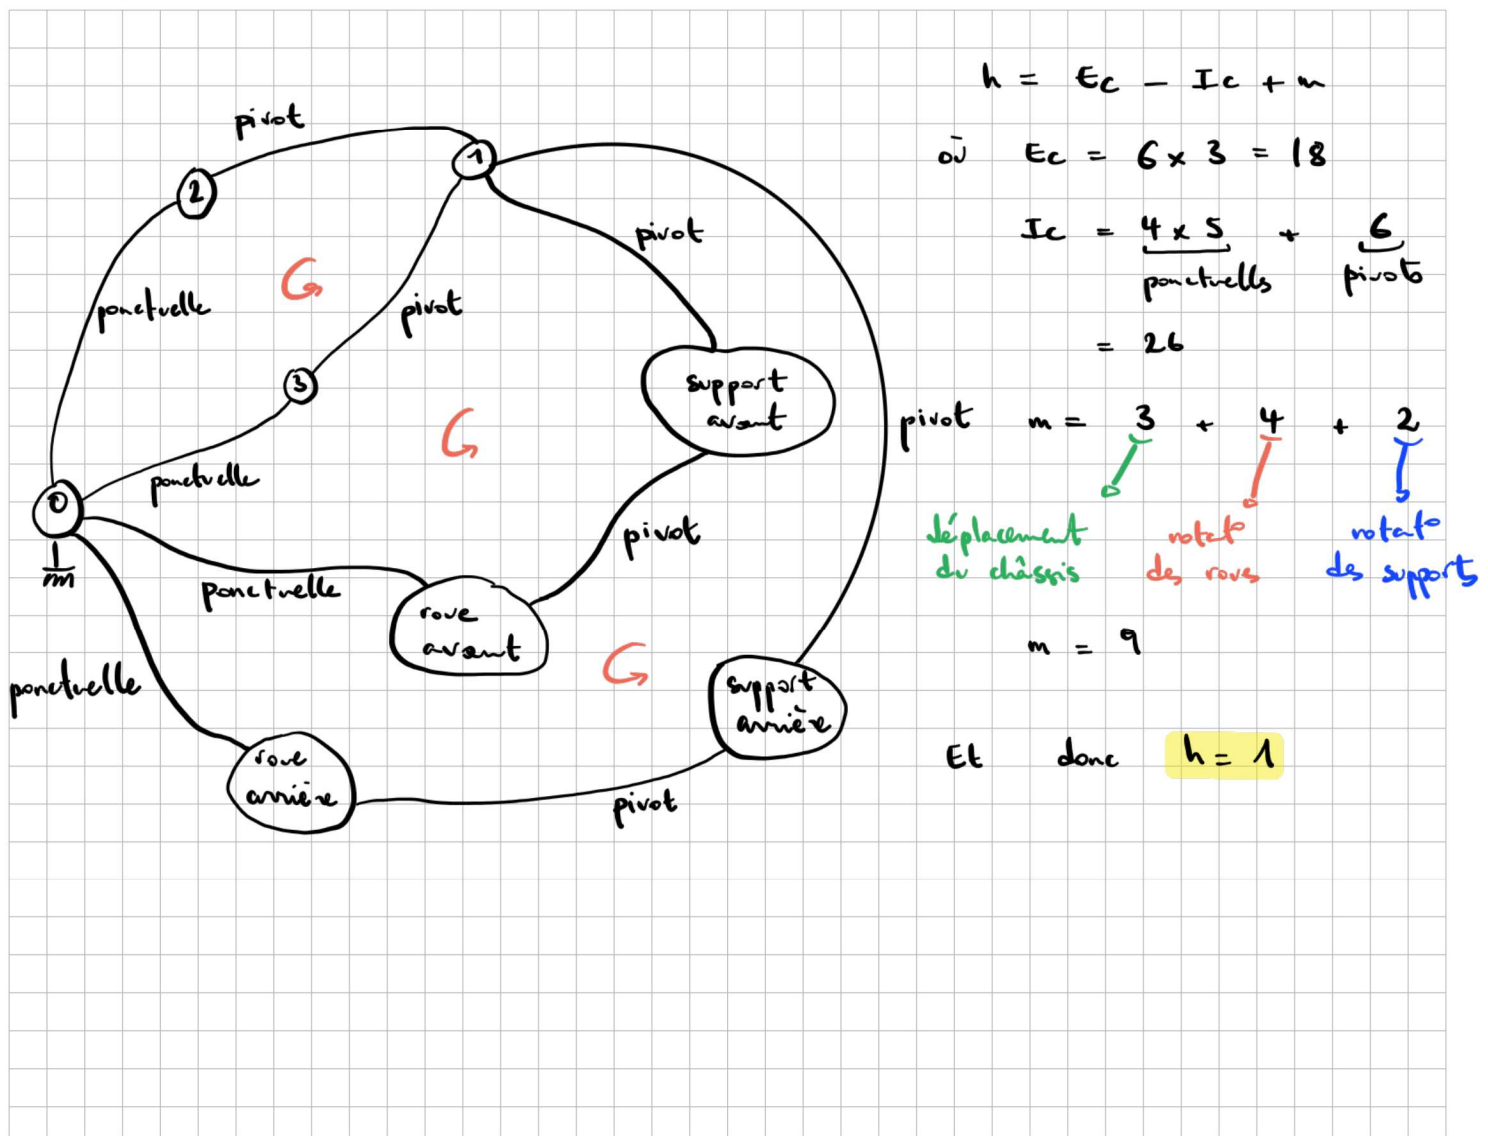 pivot
1
2
pivot
ponctuelle
pivot
3
support
avant
pivot
ponctuelle
0
pivot
ponctuelle
roue
avant
ponctuelle
support
arrière
roue
arrière
pivot
h = Ec - Ic + m
où Ec = 6 x 3 = 18
Ic = 4 x 5 + 6
ponctuelles pivots
= 26
m = 3 + 4 + 2
déplacement
du châssis
rotat°
des roues
rotat°
des supports
m = 9
Et donc h = 1